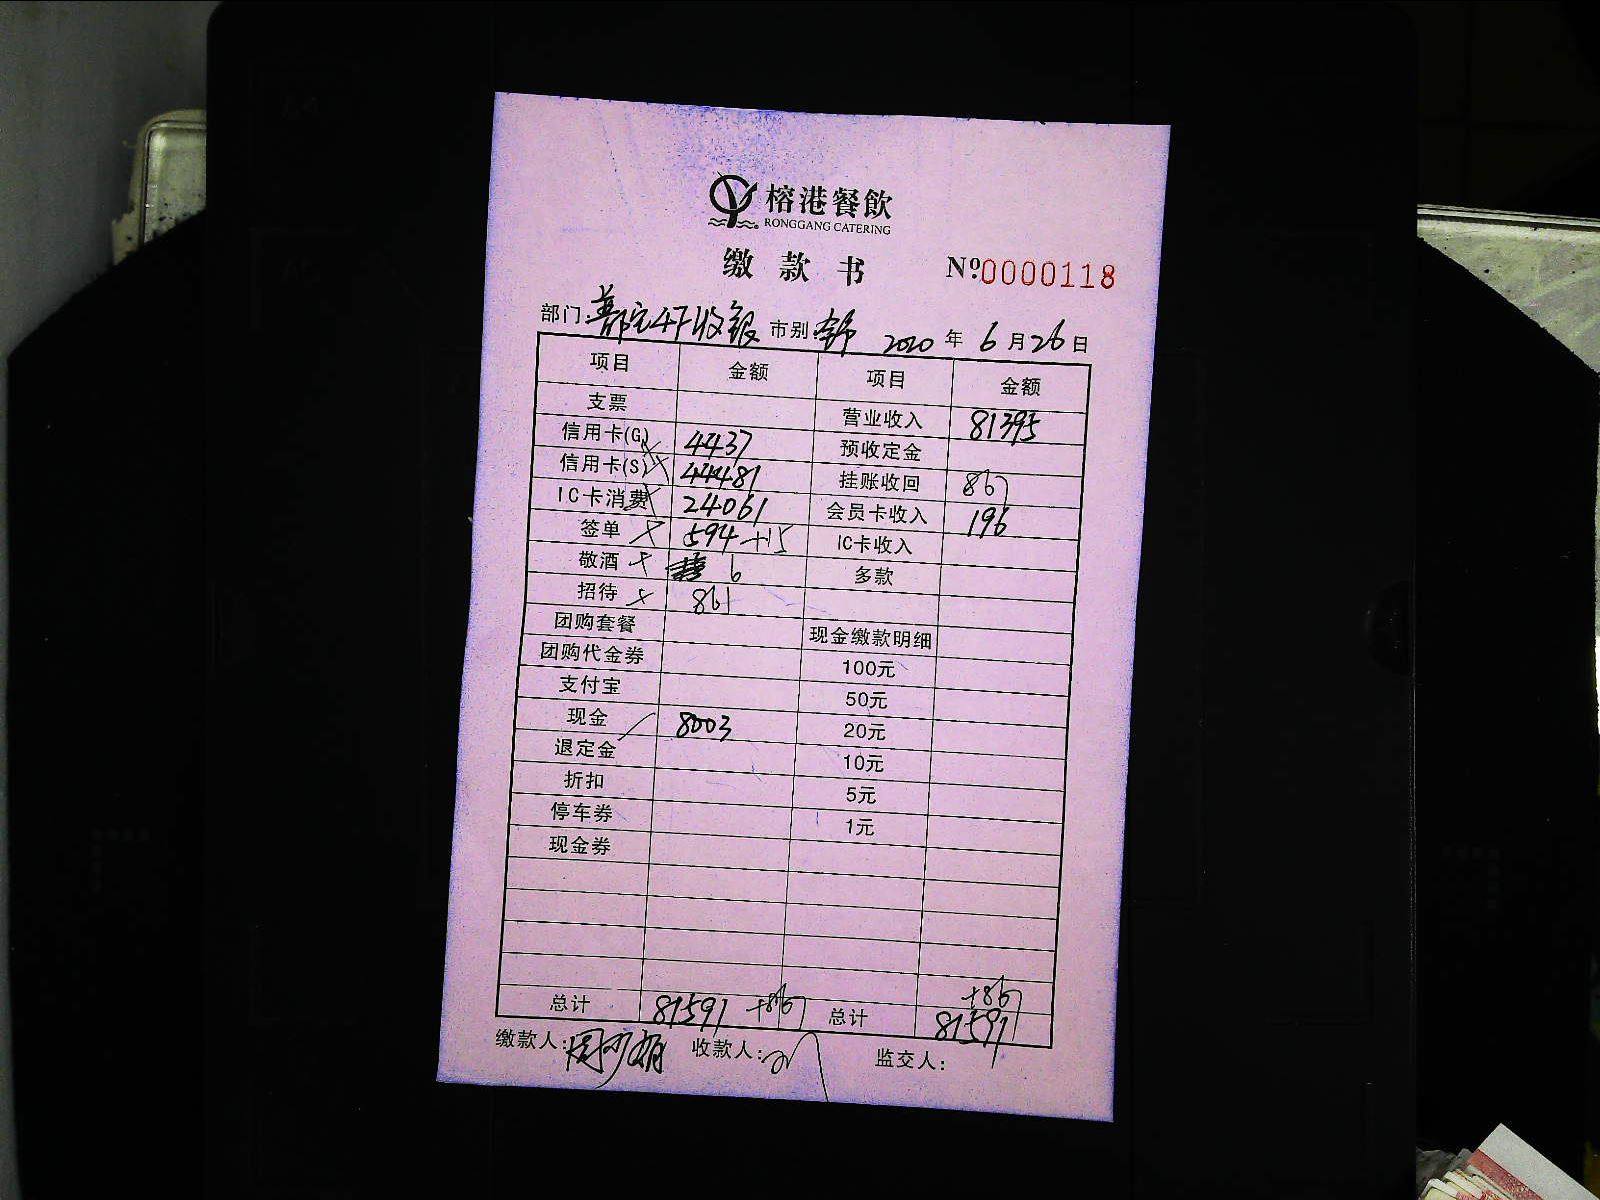 榕港餐飲
RONGGANG CATERING
缴款书 №0000118
部门: 4F收银 市别: 2020年6月26日
项目 金额 项目 金额
支票 营业收入 81395
信用卡(G) 4437 预收定金
信用卡(S) 44481 挂账收回 867
IC卡消费 24061 会员卡收入 196
签单 594+15 IC卡收入
敬酒 6 多款
招待 861
团购套餐 现金缴款明细
团购代金券 100元
支付宝 50元
现金 8003 20元
退定金 10元
折扣 5元
停车券 1元
现金券
+867
总计 81591 +867 总计 81591
缴款人: 收款人: 监交人: